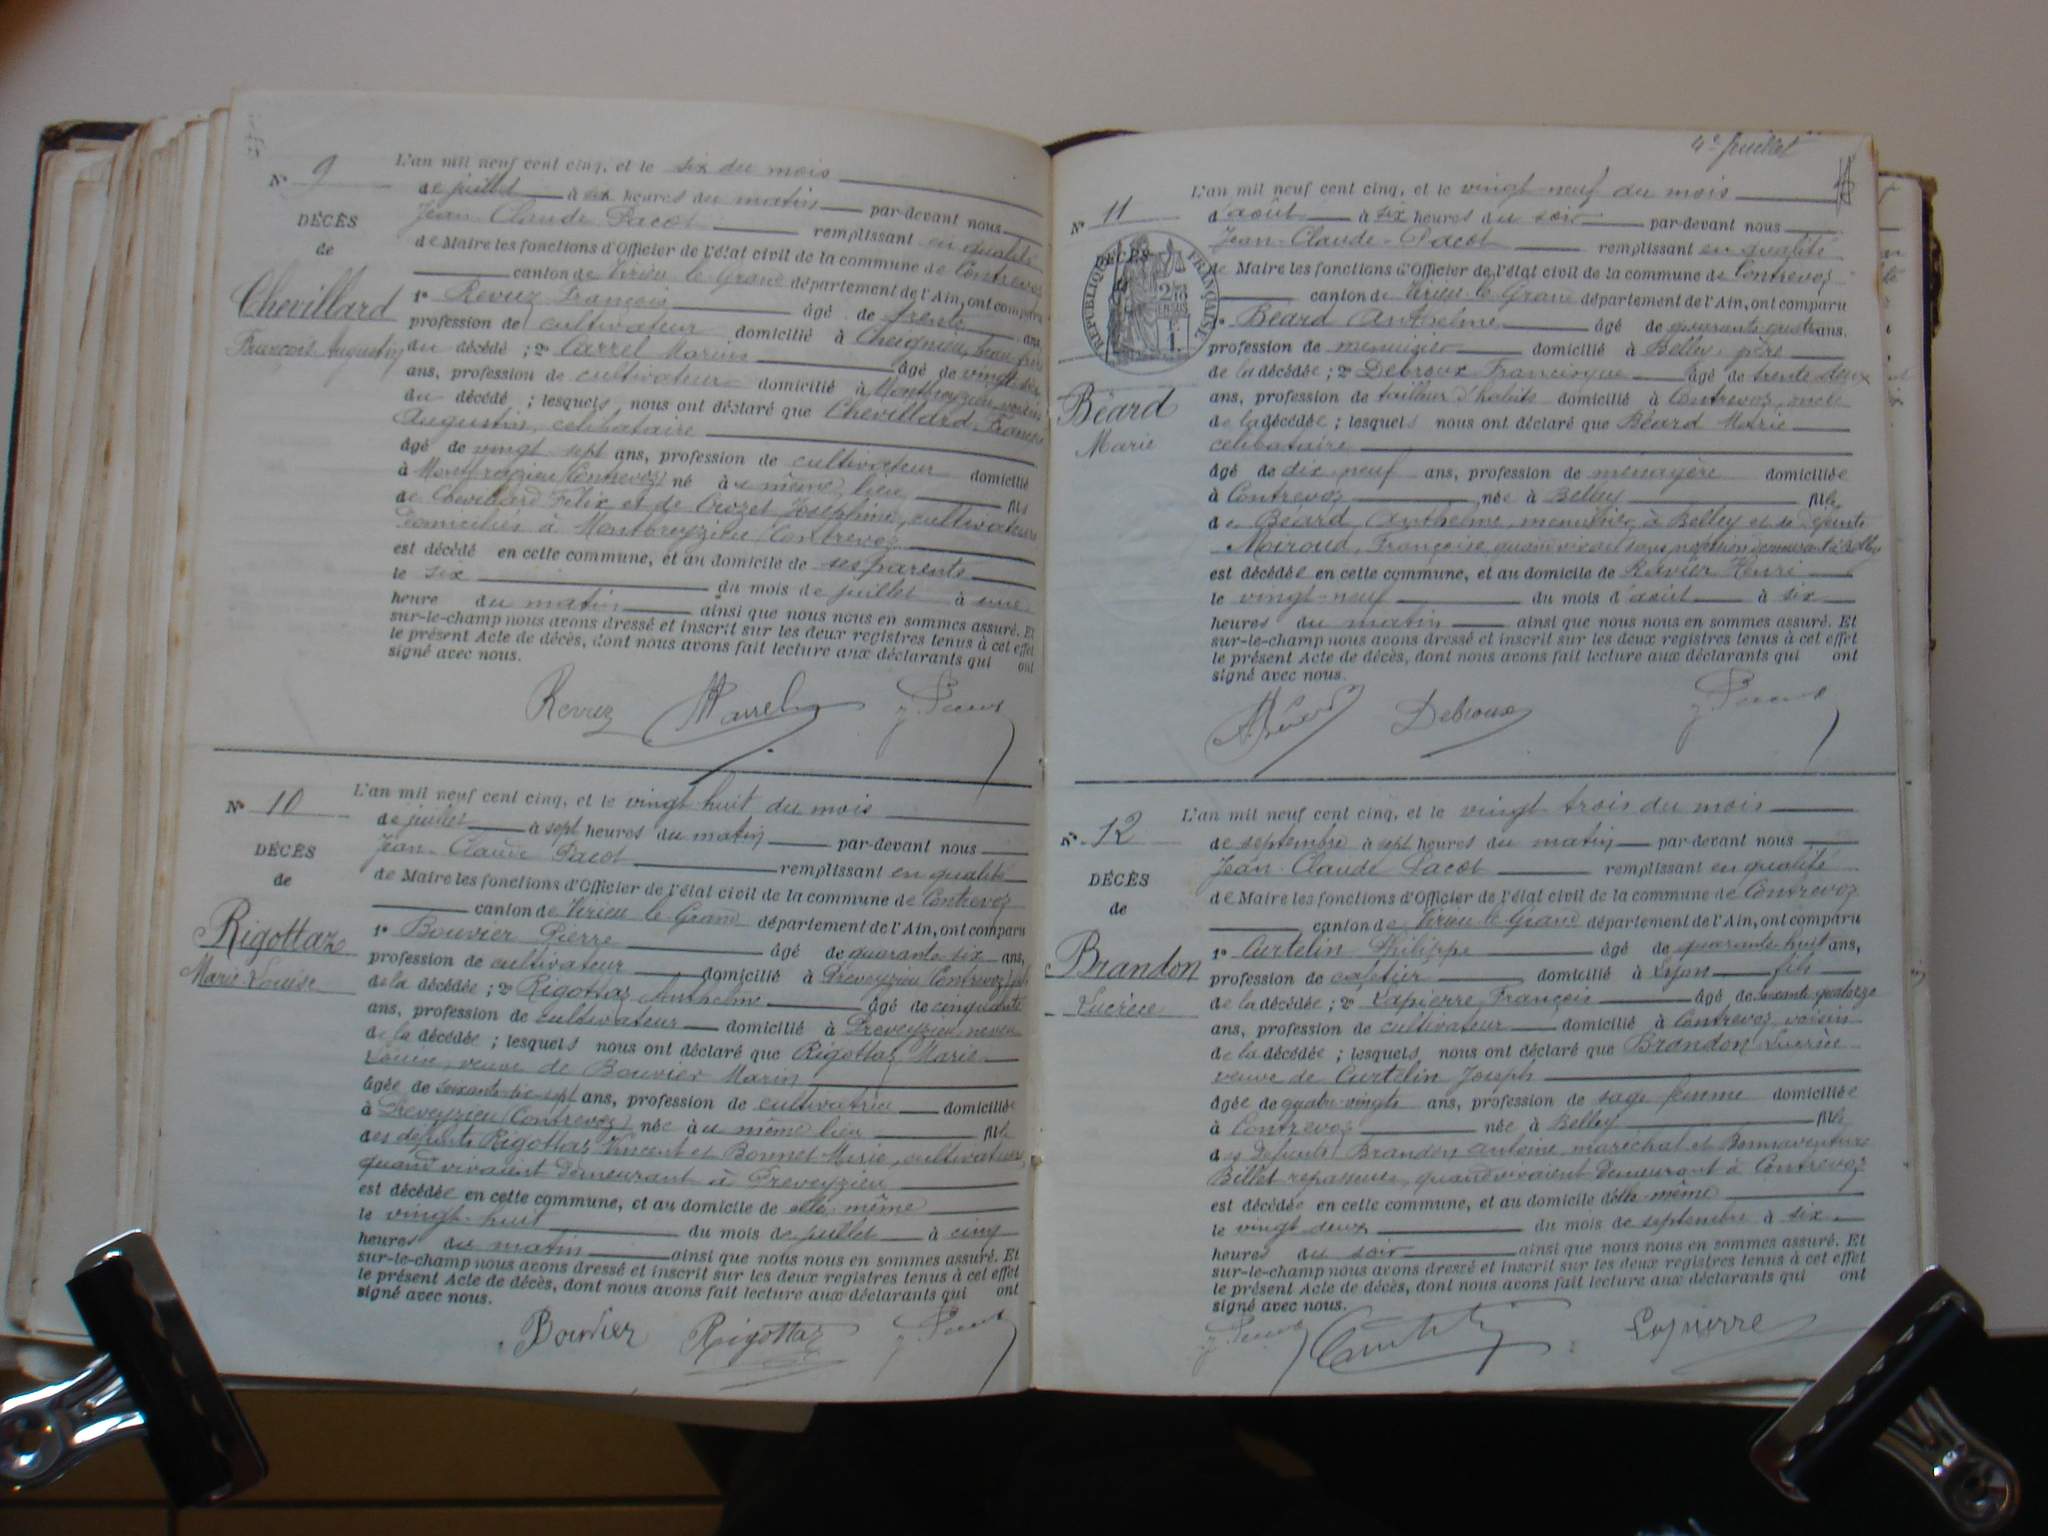 N° 9
DÉCÈS
de
Chevillard
François Augustin
L'an mil neuf cent cinq, et le six du mois
de juillet à six heures du matin par-devant nous
Jean Claude Pacot remplissant en qualité
de Maire les fonctions d'Officier de l'état civil de la commune de Contrevoz
canton de Virieu le Grand département de l'Ain, ont comparu
1° Revuz François âgé de trente ans,
profession de cultivateur domicilié à Cheignieu, beau frère
du décédé ; 2° Carrel Marius âgé de vingt
ans, profession de cultivateur domicilié à Montbreyzieu, voisin
du décédé ; lesquels nous ont déclaré que Chevillard François
Augustin, célibataire
âgé de vingt sept ans, profession de cultivateur domicilié
à Montbreyzieu (Contrevoz) né à u même lieu fils
de Chevillard Félix et de Crozet Joséphine, cultivateurs
domiciliés à Montbreyzieu (Contrevoz)
est décédé en cette commune, et au domicile de ses parents
le six du mois de juillet à une
heure du matin ainsi que nous nous en sommes assuré. Et
sur-le-champ nous avons dressé et inscrit sur les deux registres tenus à cet effet
le présent Acte de décès, dont nous avons fait lecture aux déclarants qui ont
signé avec nous.
Revuz Carrel J. Pacot
N° 10
DÉCÈS
de
Rigottaz
Marie-Louise
L'an mil neuf cent cinq, et le vingt huit du mois
de juillet à sept heures du matin par-devant nous
Jean-Claude Pacot remplissant en qualité
de Maire les fonctions d'Officier de l'état civil de la commune de Contrevoz
canton de Virieu le Grand département de l'Ain, ont comparu
1° Bouvier Pierre âgé de quarante six ans,
profession de cultivateur domicilié à Preveyzieu (Contrevoz) fils
de la décédée ; 2° Rigottaz Anthelme âgé de cinquante
ans, profession de cultivateur domicilié à Preveyzieu neveu
de la décédée ; lesquels nous ont déclaré que Rigottaz Marie
Louise, veuve de Bouvier Marin
âgée de soixante dix sept ans, profession de cultivatrice domiciliée
à Preveyzieu (Contrevoz) née à u même lieu fille
des défunts Rigottaz Vincent et Bonnet Marie, cultivateurs,
quand vivaient demeurant à Preveyzieu
est décédée en cette commune, et au domicile de elle même
le vingt-huit du mois de juillet à cinq
heures du matin ainsi que nous nous en sommes assuré. Et
sur-le-champ nous avons dressé et inscrit sur les deux registres tenus à cet effet
le présent Acte de décès, dont nous avons fait lecture aux déclarants qui ont
signé avec nous.
Bouvier Rigottaz J. Pacot
4e feuillet
N° 11
DÉCÈS
RÉPUBLIQUE FRANÇAISE
Béard
Marie
L'an mil neuf cent cinq, et le vingt neuf du mois
d'août à six heures du soir par-devant nous
Jean-Claude-Pacot remplissant en qualité
de Maire les fonctions d'Officier de l'état civil de la commune de Contrevoz
canton de Virieu-le-Grand département de l'Ain, ont comparu
1° Béard Anthelme âgé de quarante quatre ans.
profession de menuisier domicilié à Belley, père
de la décédée ; 2° Debroux Francisque âgé de trente deux
ans, profession de tailleur d'habits domicilié à Contrevoz, oncle
de la décédée ; lesquels nous ont déclaré que Béard Marie
célibataire
âgé de dix-neuf ans, profession de ménagère domiciliée
à Contrevoz née à Belley fille
de Béard Anthelme, menuisier à Belley et de défunte
Moiroud, Françoise quand vivait sans profession demeurant à Belley
est décédée en cette commune, et au domicile de Ravier Henri
le vingt-neuf du mois d'août à six
heures du matin ainsi que nous nous en sommes assuré. Et
sur-le-champ nous avons dressé et inscrit sur les deux registres tenus à cet effet
le présent Acte de décès, dont nous avons fait lecture aux déclarants qui ont
signé avec nous.
A. Béard Debroux J. Pacot
N° 12
DÉCÈS
de
Brandon
Lucrèce
L'an mil neuf cent cinq, et le vingt trois du mois
de septembre à sept heures du matin par-devant nous
Jean-Claude Pacot remplissant en qualité
de Maire les fonctions d'Officier de l'état civil de la commune de Contrevoz
canton de Virieu-le-Grand département de l'Ain, ont comparu
1° Curtelin Philippe âgé de quarante-huit ans,
profession de cafetier domicilié à Lyon fils
de la décédée ; 2° Lapierre François âgé de soixante quatorze
ans, profession de cultivateur domicilié à Contrevoz, voisin
de la décédée ; lesquels nous ont déclaré que Brandon Lucrèce
veuve de Curtelin Joseph
âgée de quatre-vingts ans, profession de sage femme domiciliée
à Contrevoz née à Belley fille
des défunts Brandon Antoine, maréchal et Bonnaventure
Billet repasseuse, quand vivaient demeurant à Contrevoz
est décédée en cette commune, et au domicile d'elle-même
le vingt deux du mois de septembre à six
heures du soir ainsi que nous nous en sommes assuré. Et
sur-le-champ nous avons dressé et inscrit sur les deux registres tenus à cet effet
le présent Acte de décès, dont nous avons fait lecture aux déclarants qui ont
signé avec nous.
J. Pacot Curtelin Lapierre